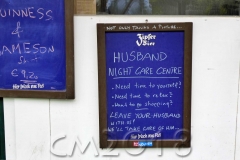 GUINNESS
of
JAMESON
€ 9,20
NOT ONLY TAKING A PICTURE...
Zipfer
Bier
HUSBAND
NIGHT CARE CENTRE
- Need time to yourself?
- Need time to relax?
- Want to go shopping?
LEAVE YOUR HUSBAND
WITH US!
WE'LL TAKE CARE OF HIM...
CM2016